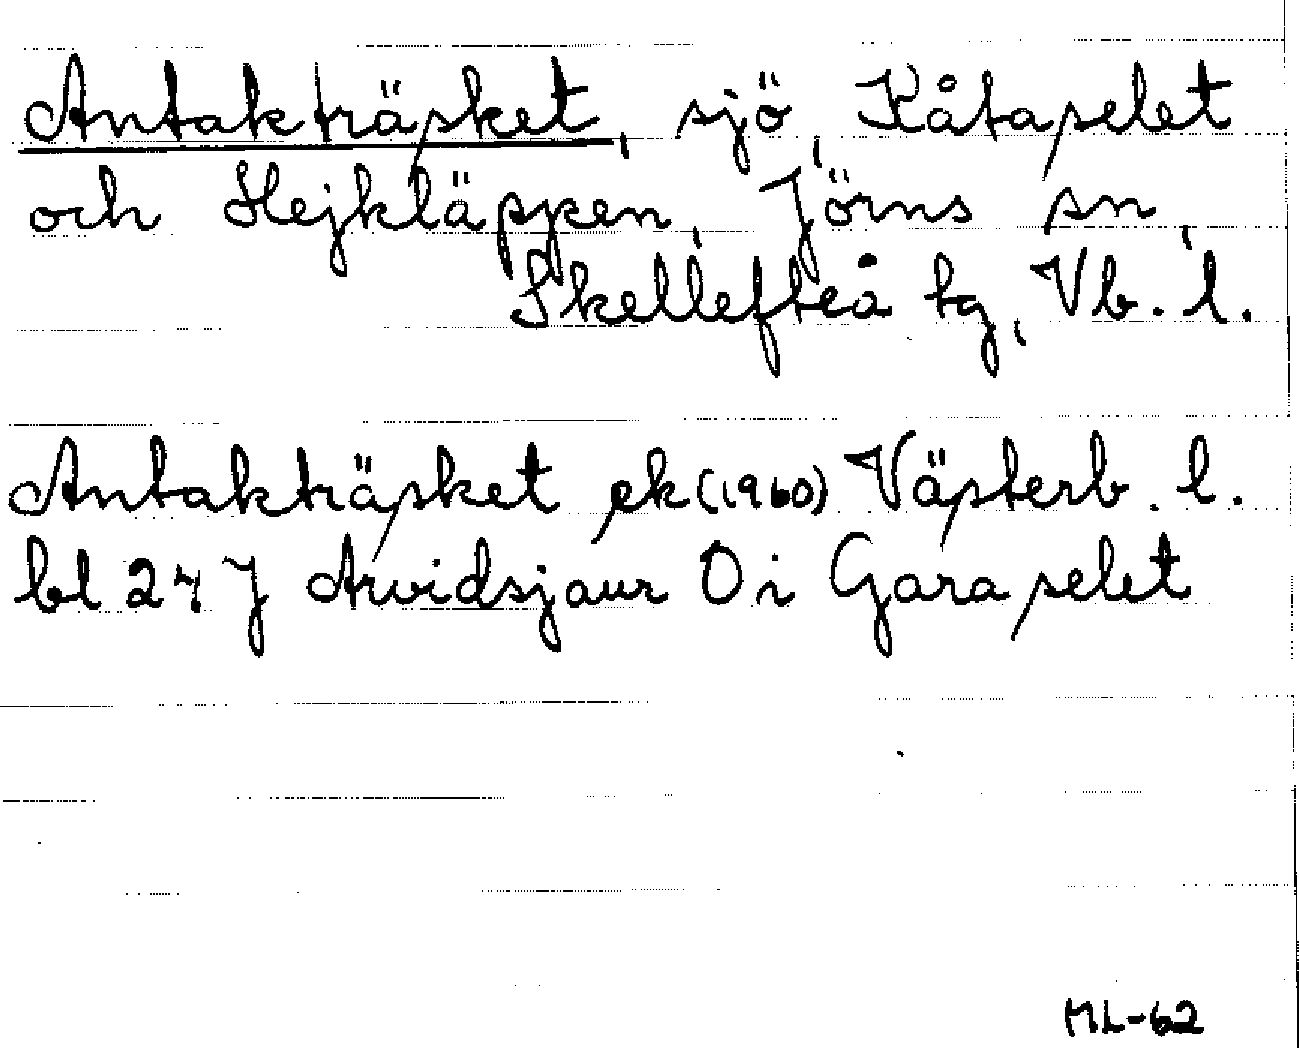 Antakträsket, sjö, Kåtaselet
och Hejkläppen, Jörns sn,
Skellefteå tg, Vb. l.
Antakträsket ek (1960) Västerb. l.
bl 24 J Arvidsjaur O i Garaselet
ML-62